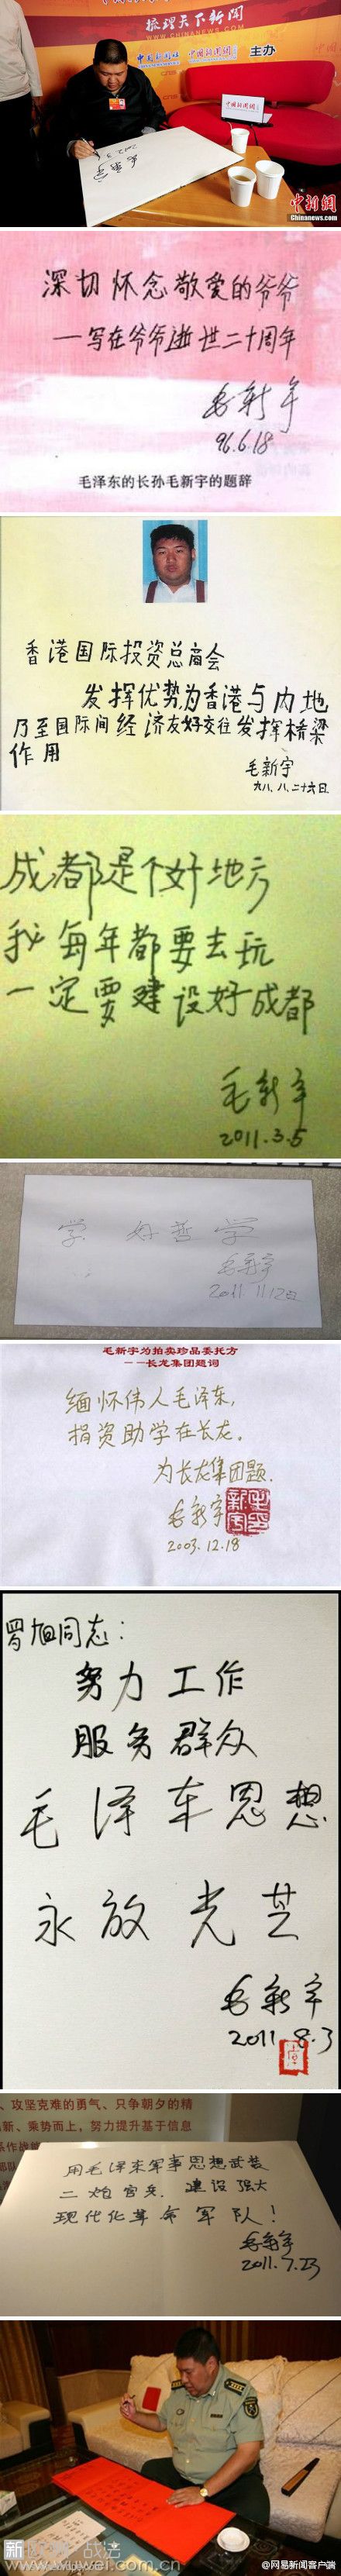 梳理天下新闻
WWW.CHINANEWS.COM
中国新闻社 中国新闻网 主办
中国新闻网
毛新宇
2012.3.
中新网
Chinanews.com
深切怀念敬爱的爷爷
—写在爷爷逝世二十周年
毛新宇
96.6.18
毛泽东的长孙毛新宇的题辞
香港国际投资总商会
发挥优势为香港与内地
乃至国际间经济友好交往发挥桥梁
作用
毛新宇
九八.八.二十六日.
成都是个好地方
我每年都要去玩
一定要建设好成都
毛新宇
2011.3.5
学好哲学
毛新宇
2011.11.12日
毛新宇为拍卖珍品委托方
——长龙集团题词
缅怀伟人毛泽东,
捐资助学在长龙。
为长龙集团题.
毛新宇
2003.12.18
罗旭同志:
努力工作
服务群众
毛泽东思想
永放光芒
毛新宇
2011.8.3
、攻坚克难的勇气、只争朝夕的精
新、乘势而上,努力提升基于信息
用毛泽东军事思想武装
二炮官兵.建设强大
现代化革命军队!
毛新宇
2011.7.23
www.wuwei.com.cn
@网易新闻客户端